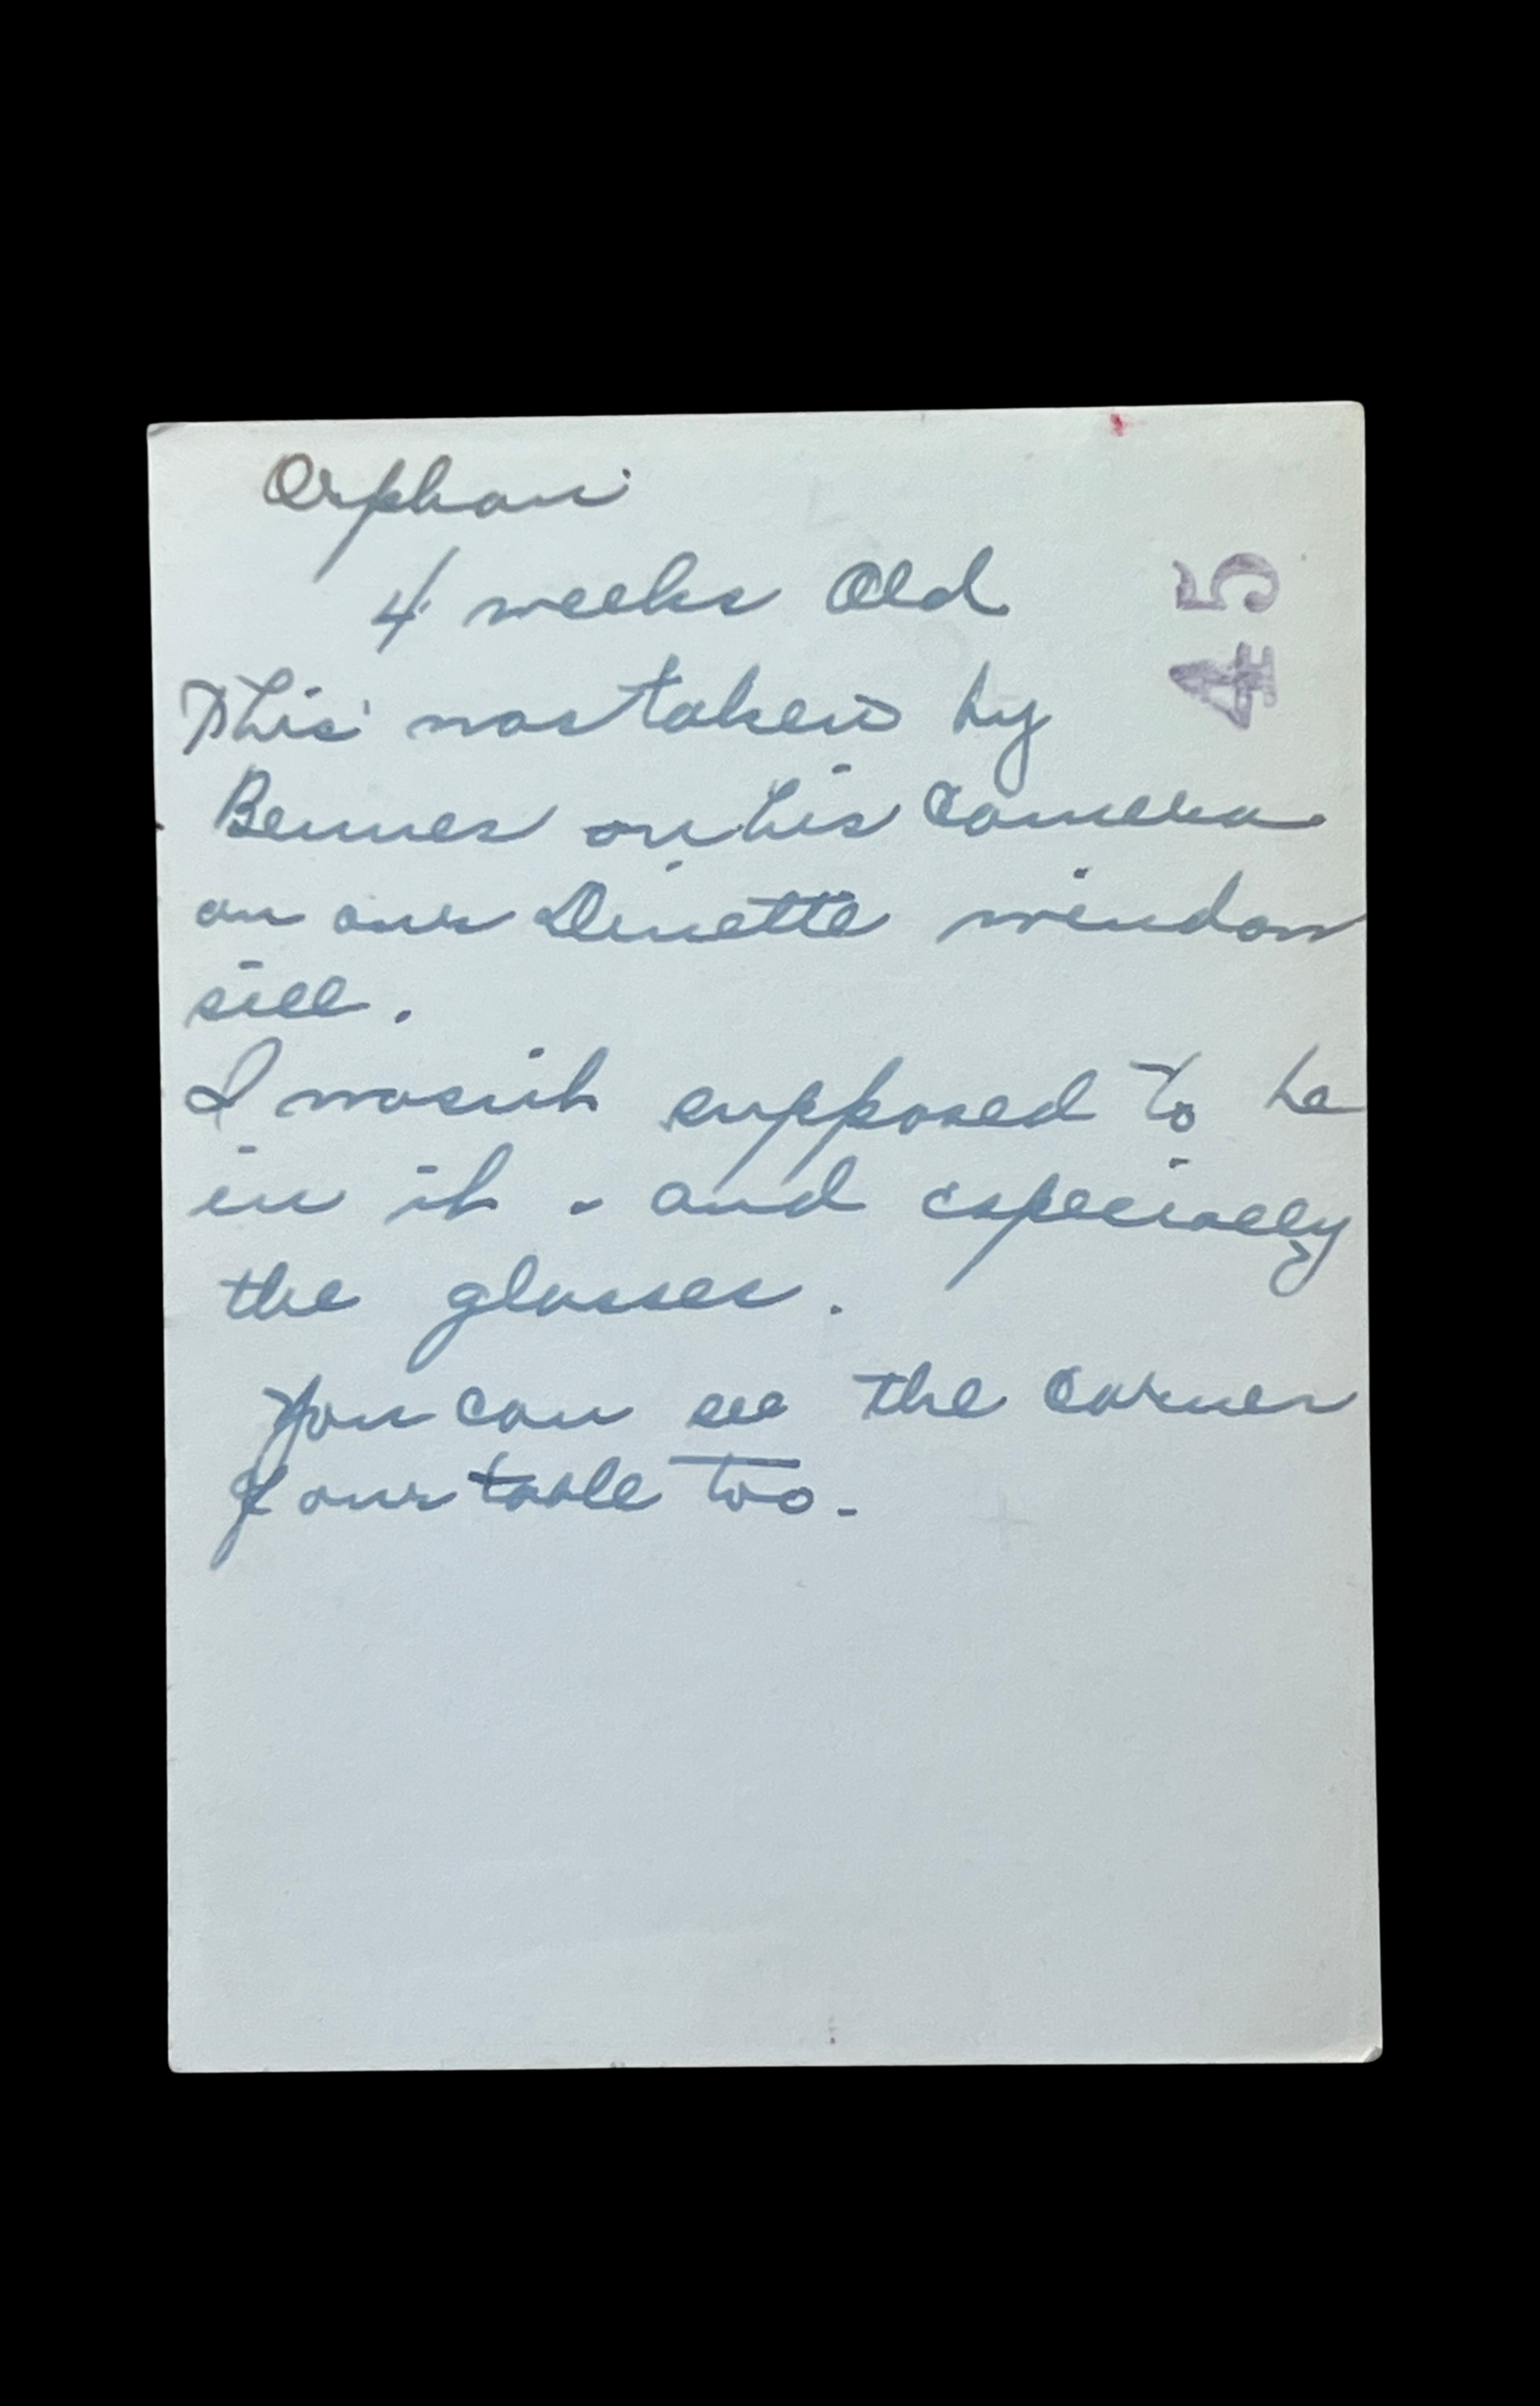 Orphan
4 weeks Old
45
This was taken by
on his Camera
on our Dinette window
sill.
I wasn't supposed to be
in it - and especially
the glasses.
You can see the corner
of our table too.